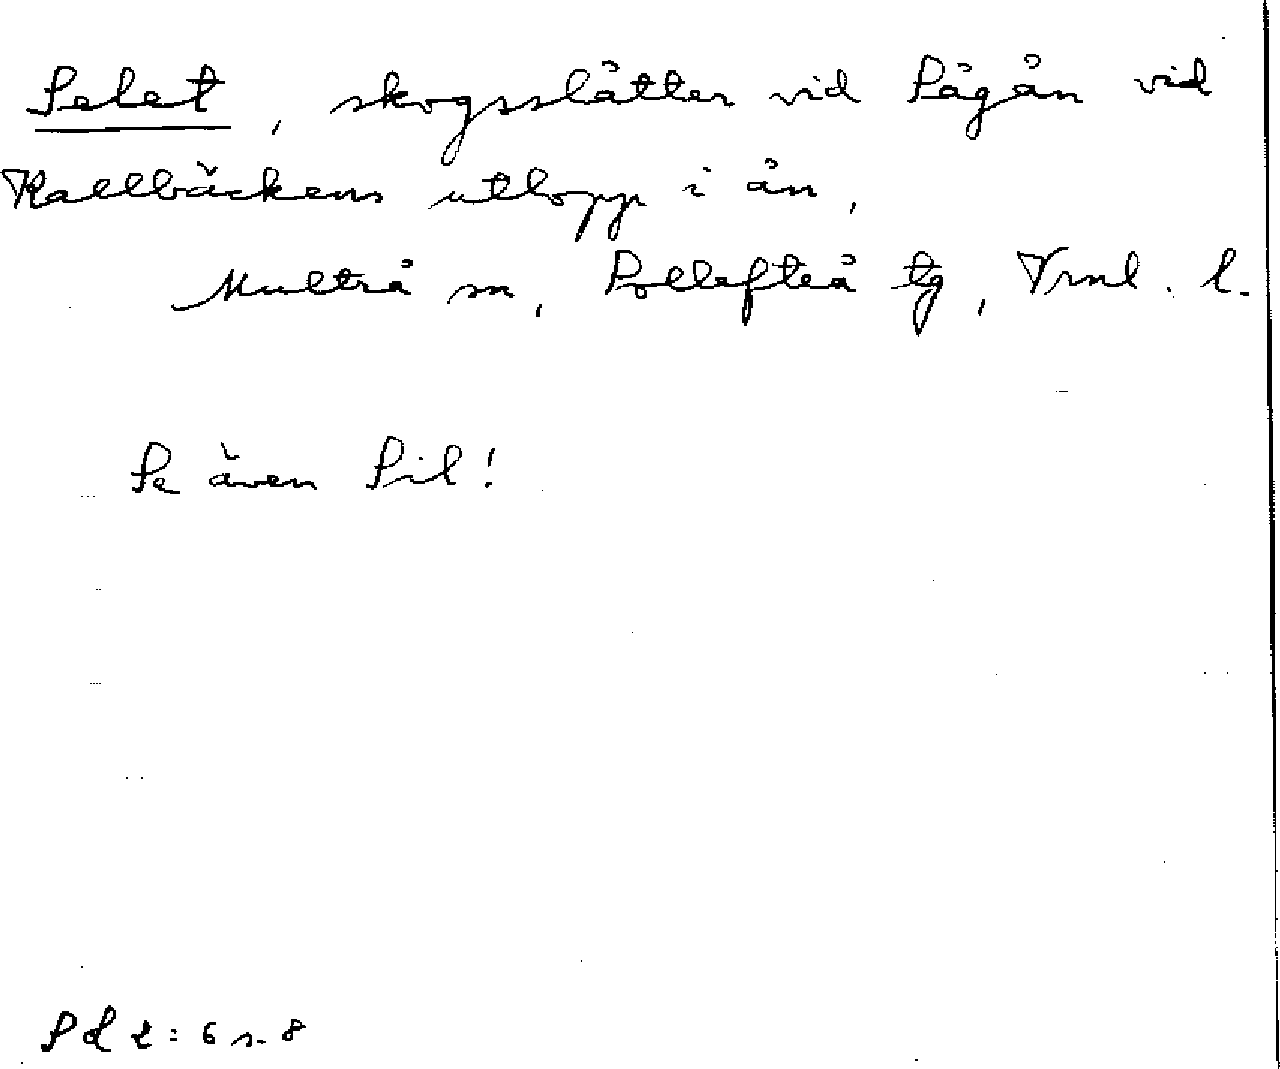 Selet, skogsslåtter vid Sågån vid
Kallbäckens utlopp i ån,
Multrå sn, Sollefteå tg, Vrnl. l.
Se även Sil!